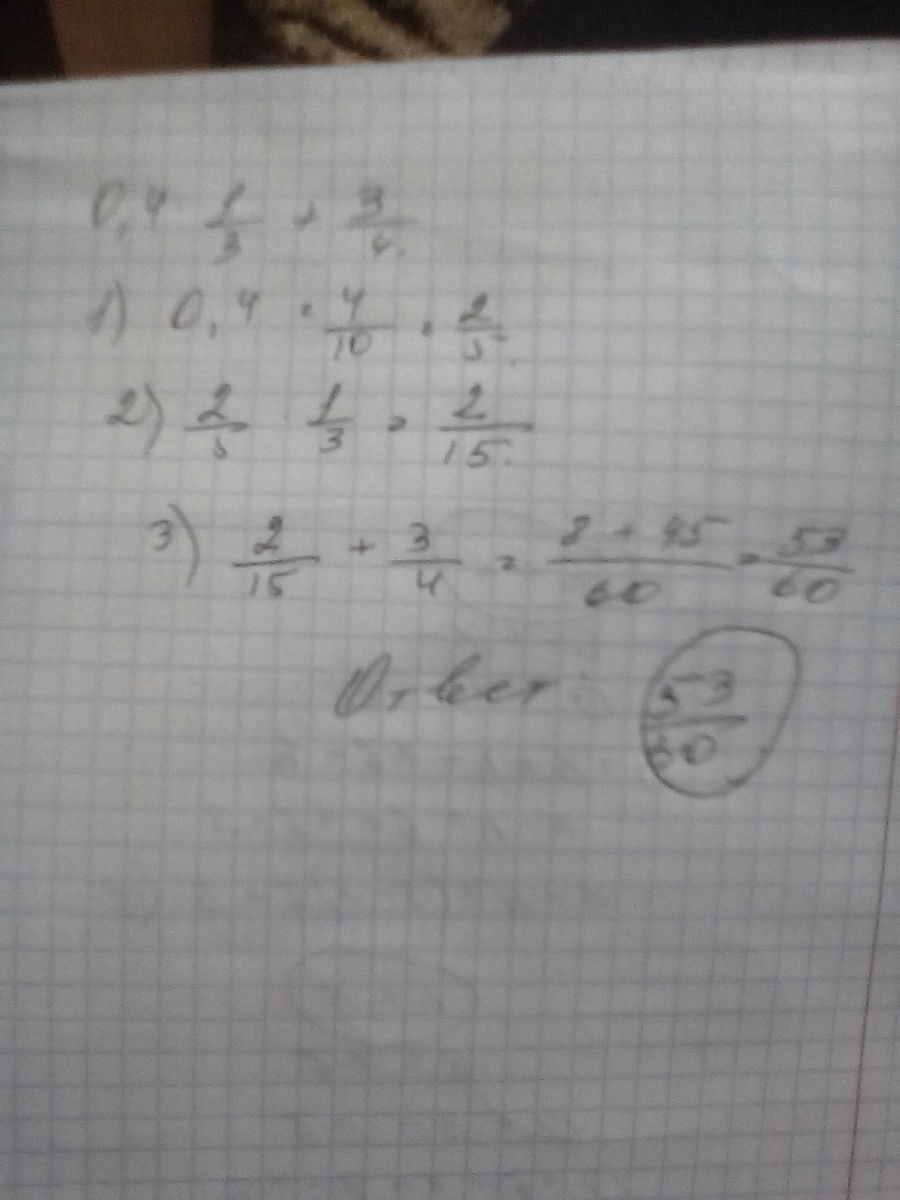 0,4 1/3 + 3/4
1) 0,4 = 4/10 = 2/5
2) 2/5 · 1/3 = 2/15
3) 2/15 + 3/4 = (8 + 45)/60 = 53/60
Ответ: 53/60